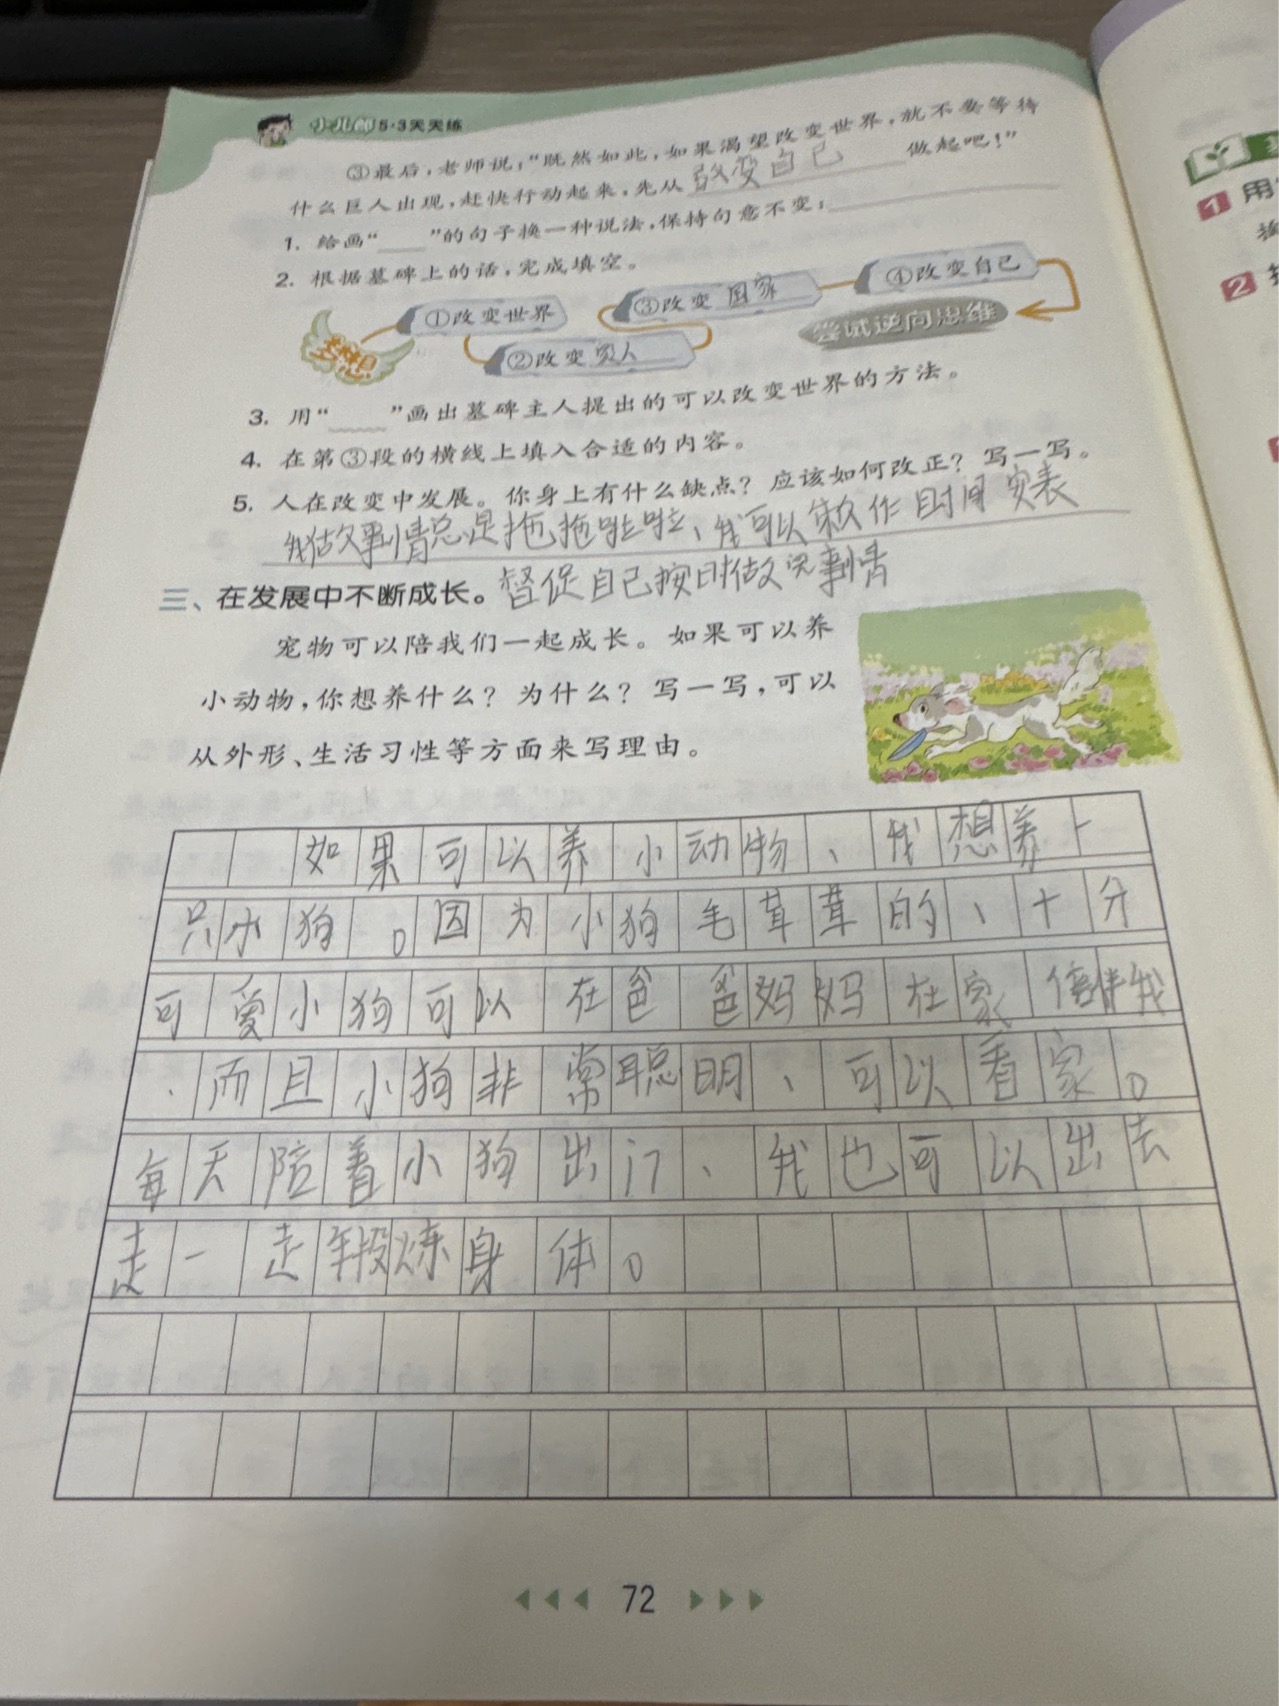 小儿郎 5·3天天练
③最后,老师说:“既然如此,如果渴望改变世界,就不要等待
什么巨人出现,赶快行动起来,先从 改变自己 做起吧!”
1. 给画“____”的句子换一种说法,保持句意不变:
2. 根据墓碑上的话,完成填空。
梦想
①改变世界
②改变 家人
③改变 国家
④改变自己
尝试逆向思维
3. 用“____”画出墓碑主人提出的可以改变世界的方法。
4. 在第③段的横线上填入合适的内容。
5. 人在改变中发展。你身上有什么缺点?应该如何改正?写一写。
我做事情总是拖拖啦啦、我可以 作 时间
三、在发展中不断成长。
督促自己按时做完事情
宠物可以陪我们一起成长。如果可以养
小动物,你想养什么?为什么?写一写,可以
从外形、生活习性等方面来写理由。
如果可以养小动物、我想养一
只小狗。因为小狗毛茸茸的、十分
可爱小狗可以在爸爸妈妈在家 伴我
.而且小狗非常聪明、可以看家。
每天陪着小狗出门、我也可以出去
走一走锻炼身体。
72
1 用
2